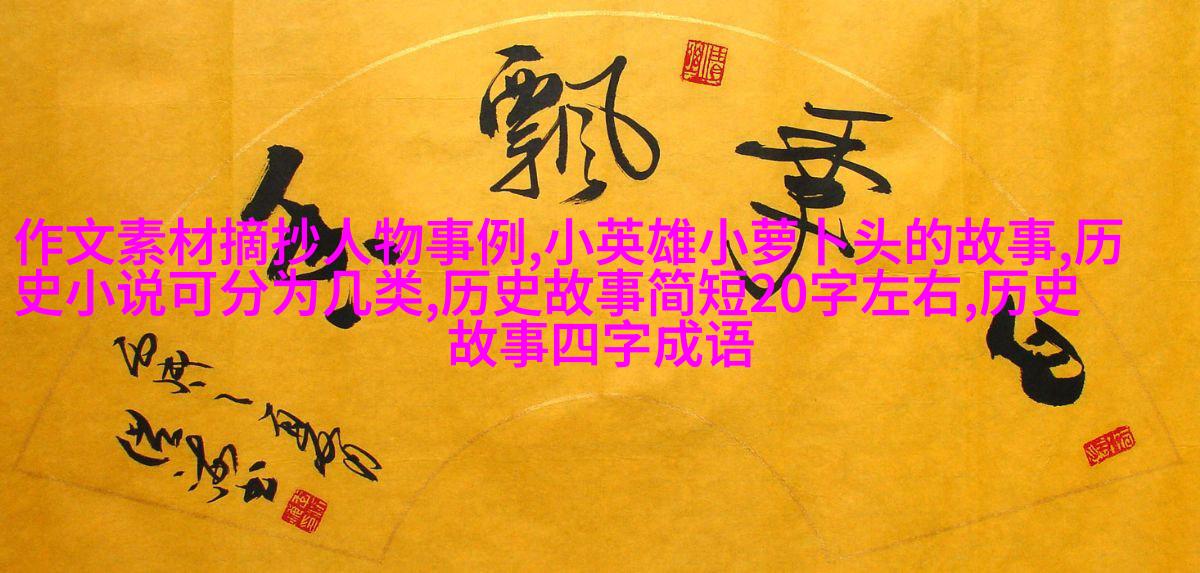 四季飘香
作文素材摘抄人物事例,小英雄小萝卜头的故事,历
史小说可分为几类,历史故事简短20字左右,历史
故事四字成语